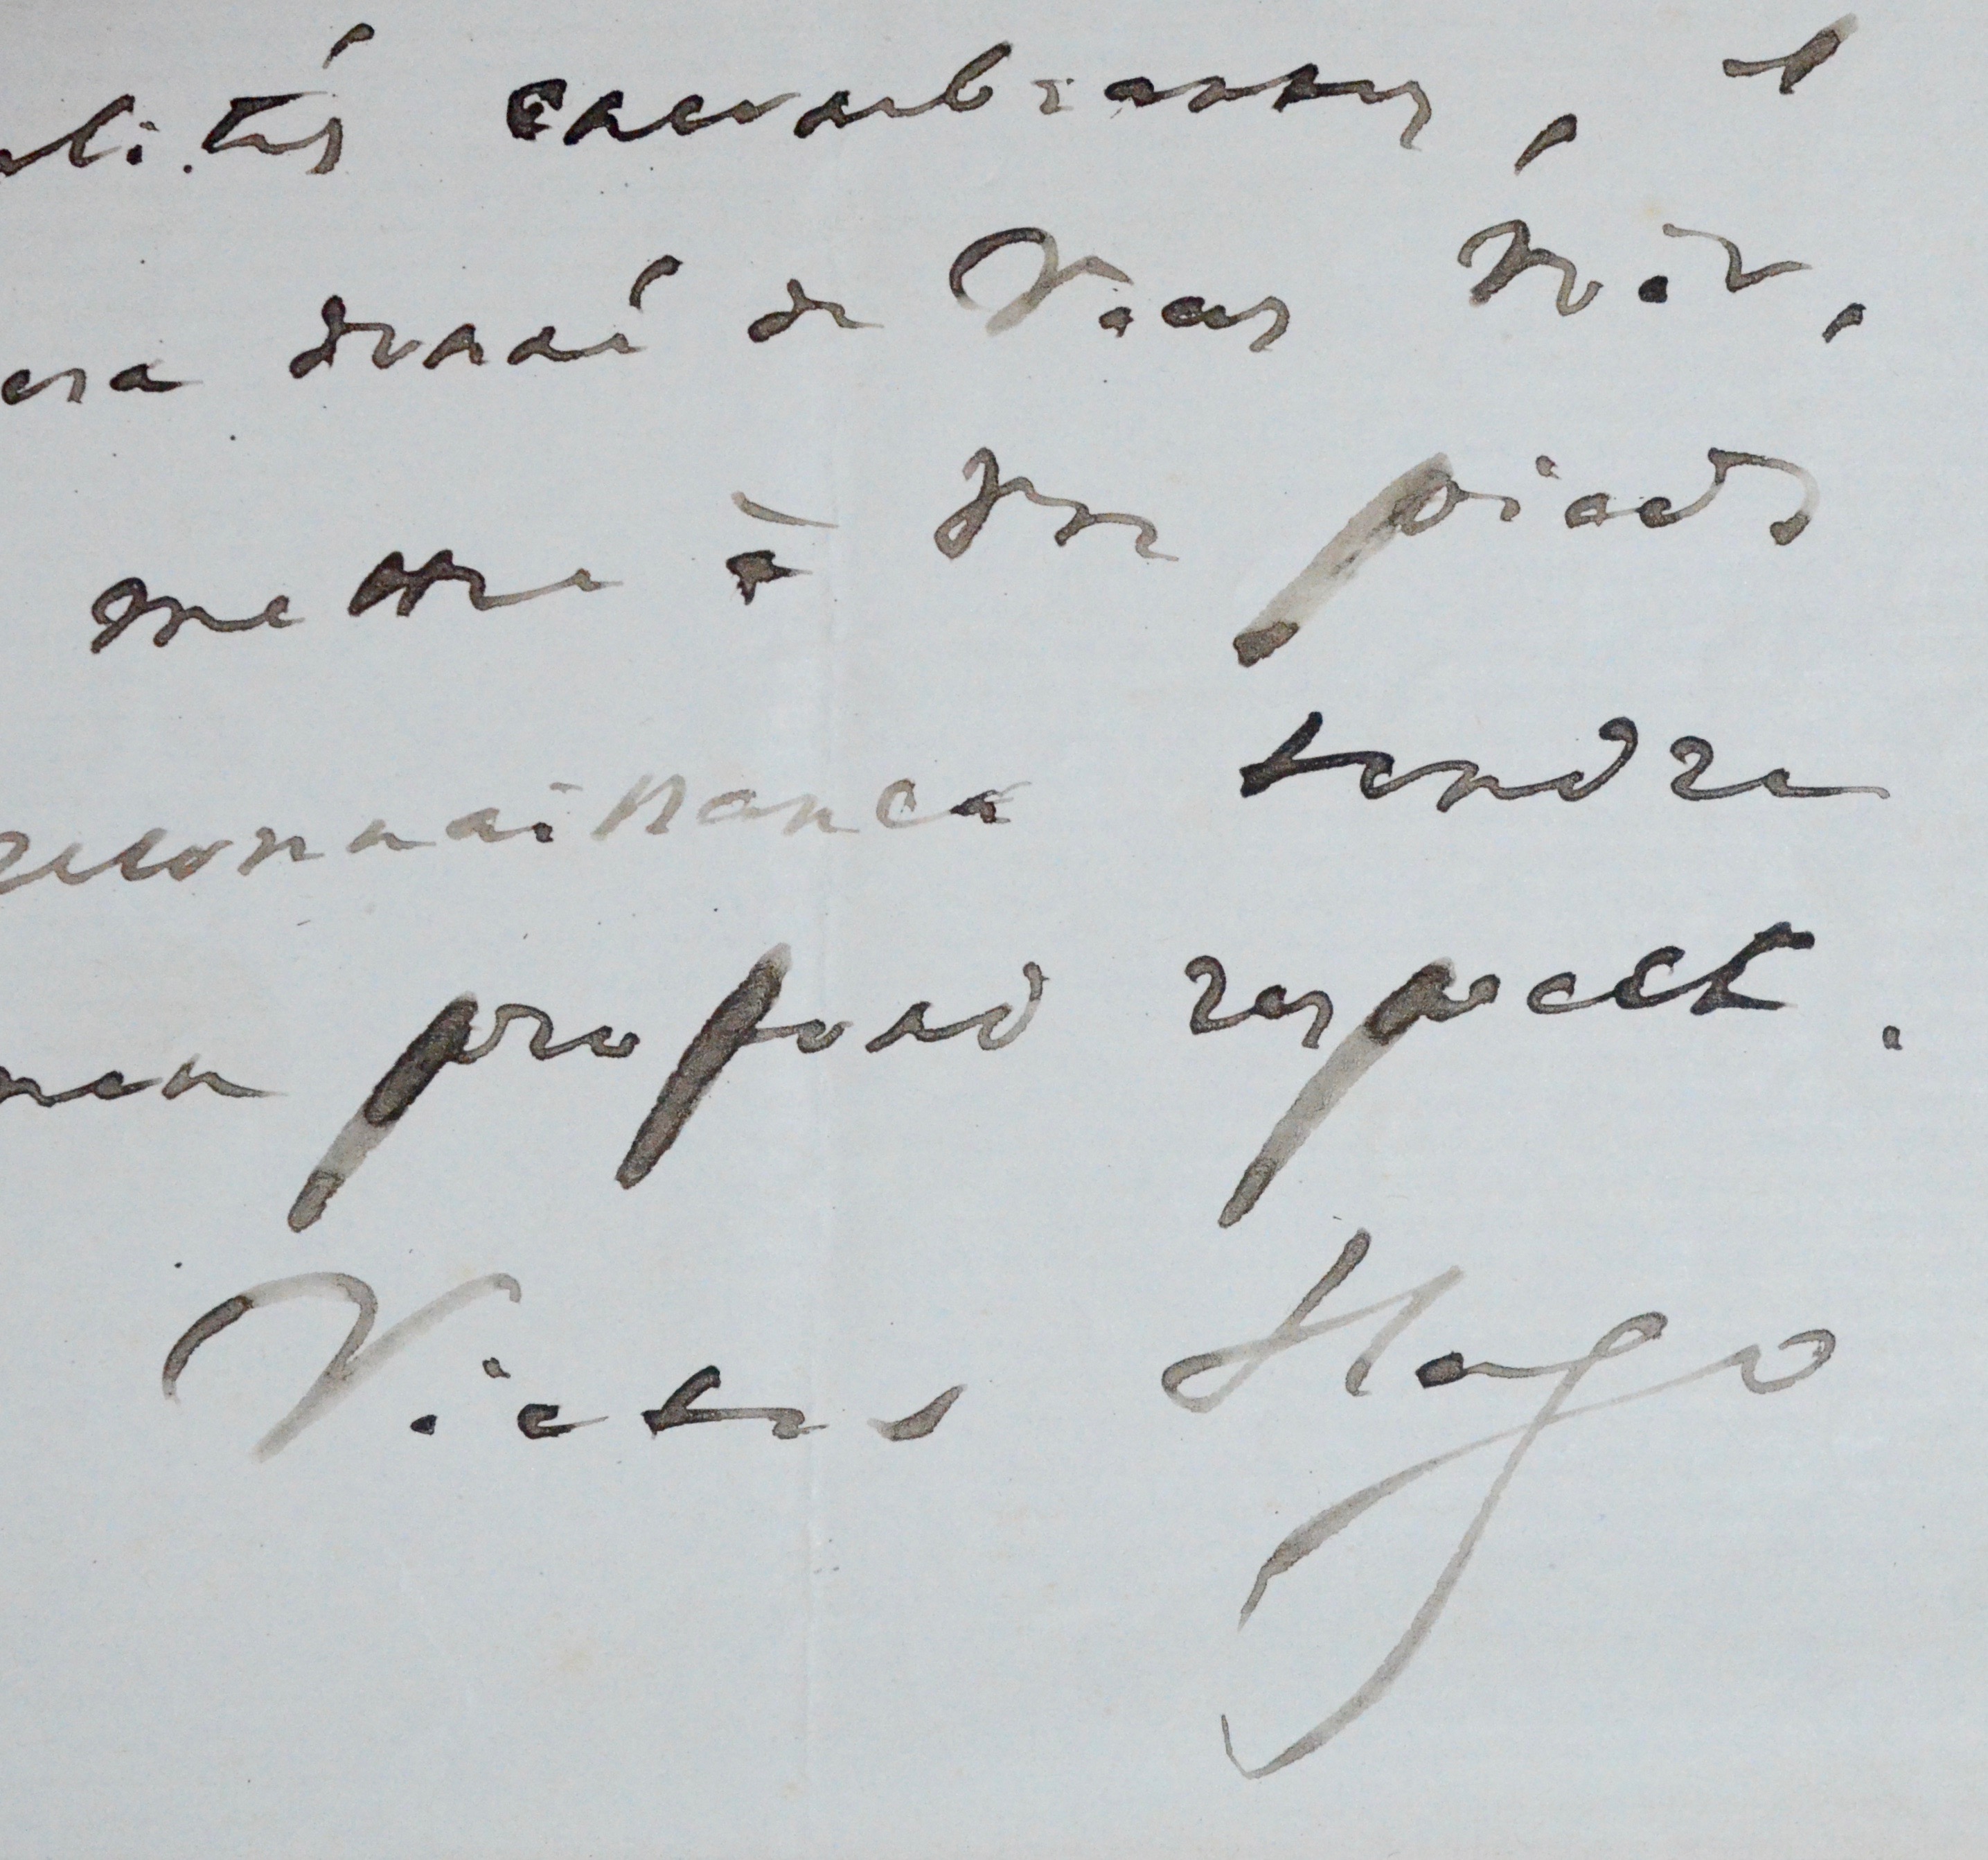 alités encombrantes, il
era donné de vous voir,
mettre à vos pieds
reconnaissance tendre
mon profond respect.
Victor Hugo